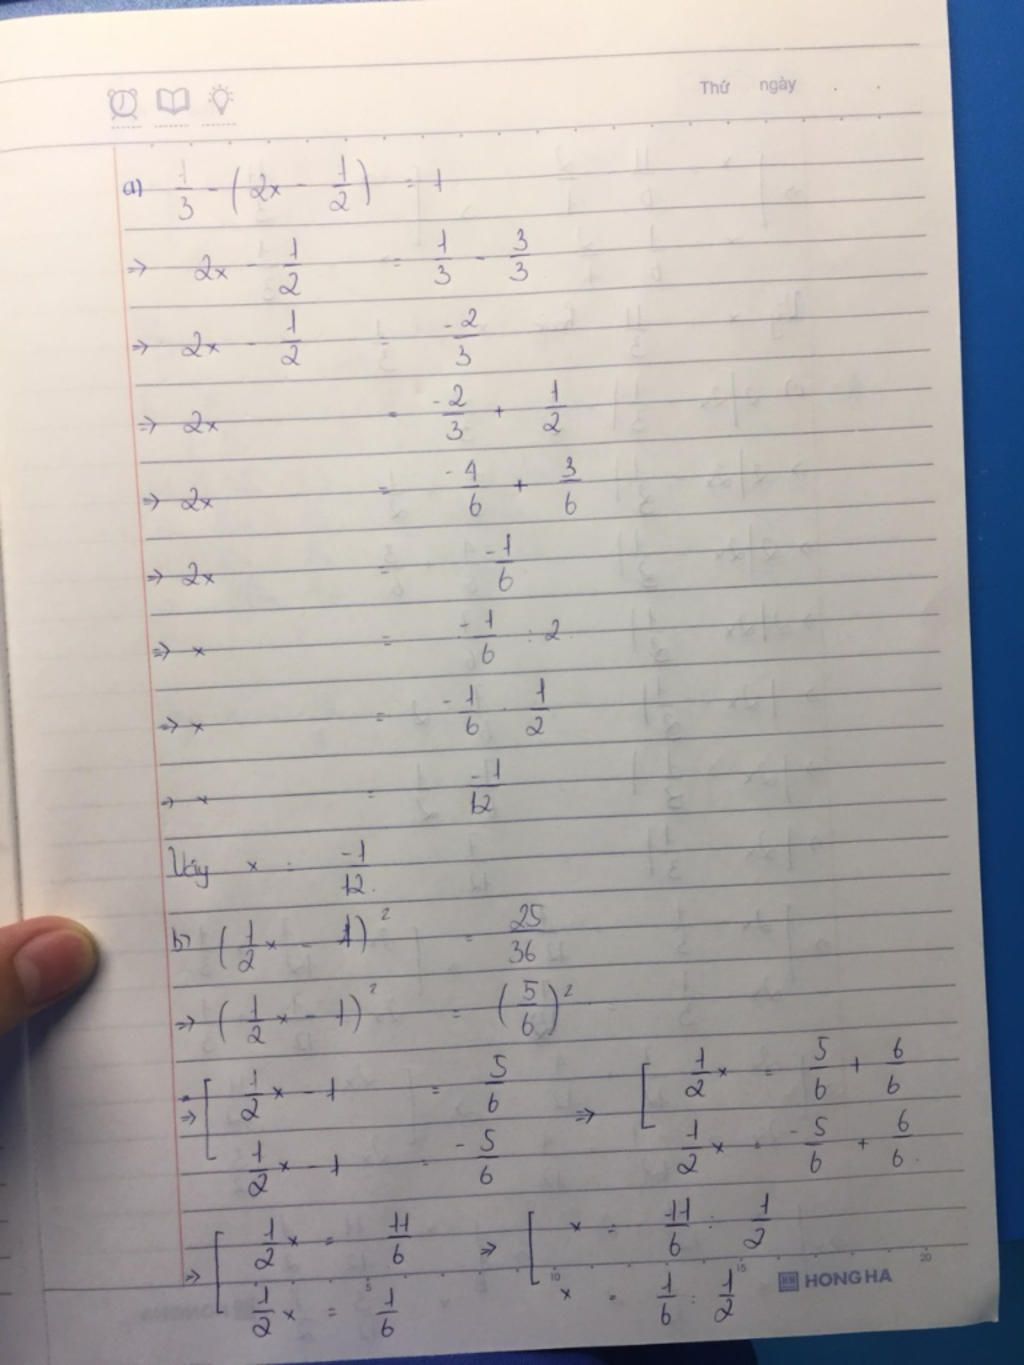 Thứ ngày
a) 1/3 - (2x - 1/2) = 1
=> 2x - 1/2 = 1/3 - 3/3
=> 2x - 1/2 = -2/3
=> 2x = -2/3 + 1/2
=> 2x = -4/6 + 3/6
=> 2x = -1/6
=> x = -1/6 : 2
=> x = -1/6 . 1/2
=> x = -1/12
Vậy x = -1/12.
b) (1/2 x - 1)² = 25/36
=> (1/2 x - 1)² = (5/6)²
=> [ 1/2 x - 1 = 5/6 => [ 1/2 x = 5/6 + 6/6
1/2 x - 1 = -5/6 1/2 x = -5/6 + 6/6.
=> [ 1/2 x = 11/6 => [ x = 11/6 : 1/2
1/2 x = 1/6 x = 1/6 : 1/2
5 10 15 20
HONG HA